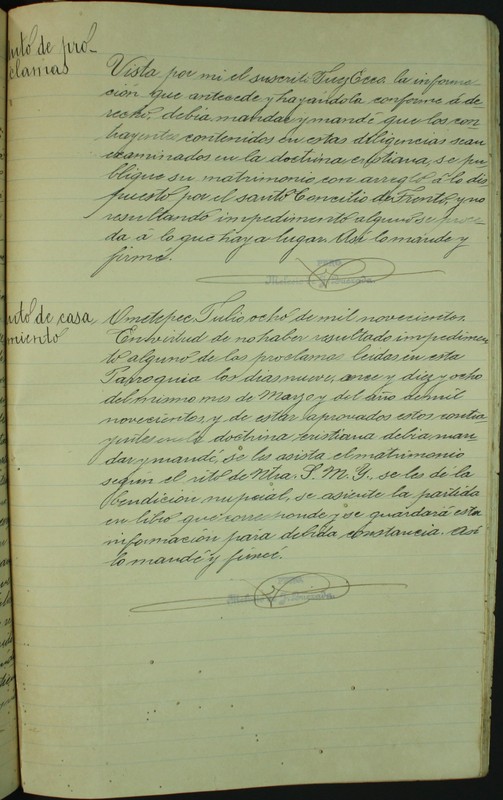 auto de pro-
clamas
Vista por mi el suscrito Juez Ecco. la informa
ción que antecede y hayándola conforme á de
recho, debia mandar y mandé que los con
trayentes contenidos en estas diligencias sean
examinados en la doctrina cristiana, se pu
blique su matrimonio con arreglo á lo dis
puesto por el santo Concilio de Trento, y no
resultando impedimento alguno se proce
da á lo que haya lugar. Así lo mandé y
firmé.
auto de casa
miento
Ometepec, Julio ocho de mil novecientos.
En virtud de no haber resultado impedimen
to alguno de las proclamas leidas en esta
Parroquia los dias nueve, once y diez y ocho
del mismo mes de Marzo y del año de mil
novecientos, y de estar aprovados estos contra
yentes en la doctrina cristiana debia man
dar y mandé, se les asista el matrimonio
segun el rito de Ntra. S. M. Y., se les dé la
bendicion nupcial, se asiente la partida
en libro que corresponde y se guardará esta
información para debida constancia. Así
lo mandé y firmé.